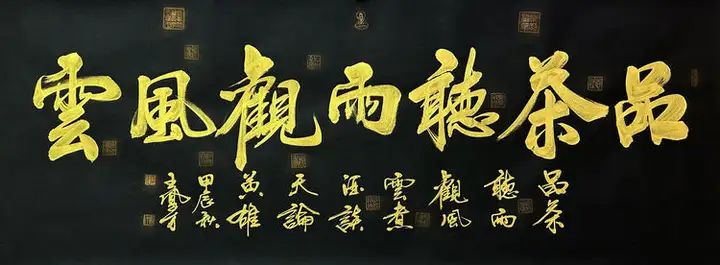 品茶聽雨觀風雲
品茶
聽雨
觀風
雲煮
酒談
天論
英雄
甲辰秋